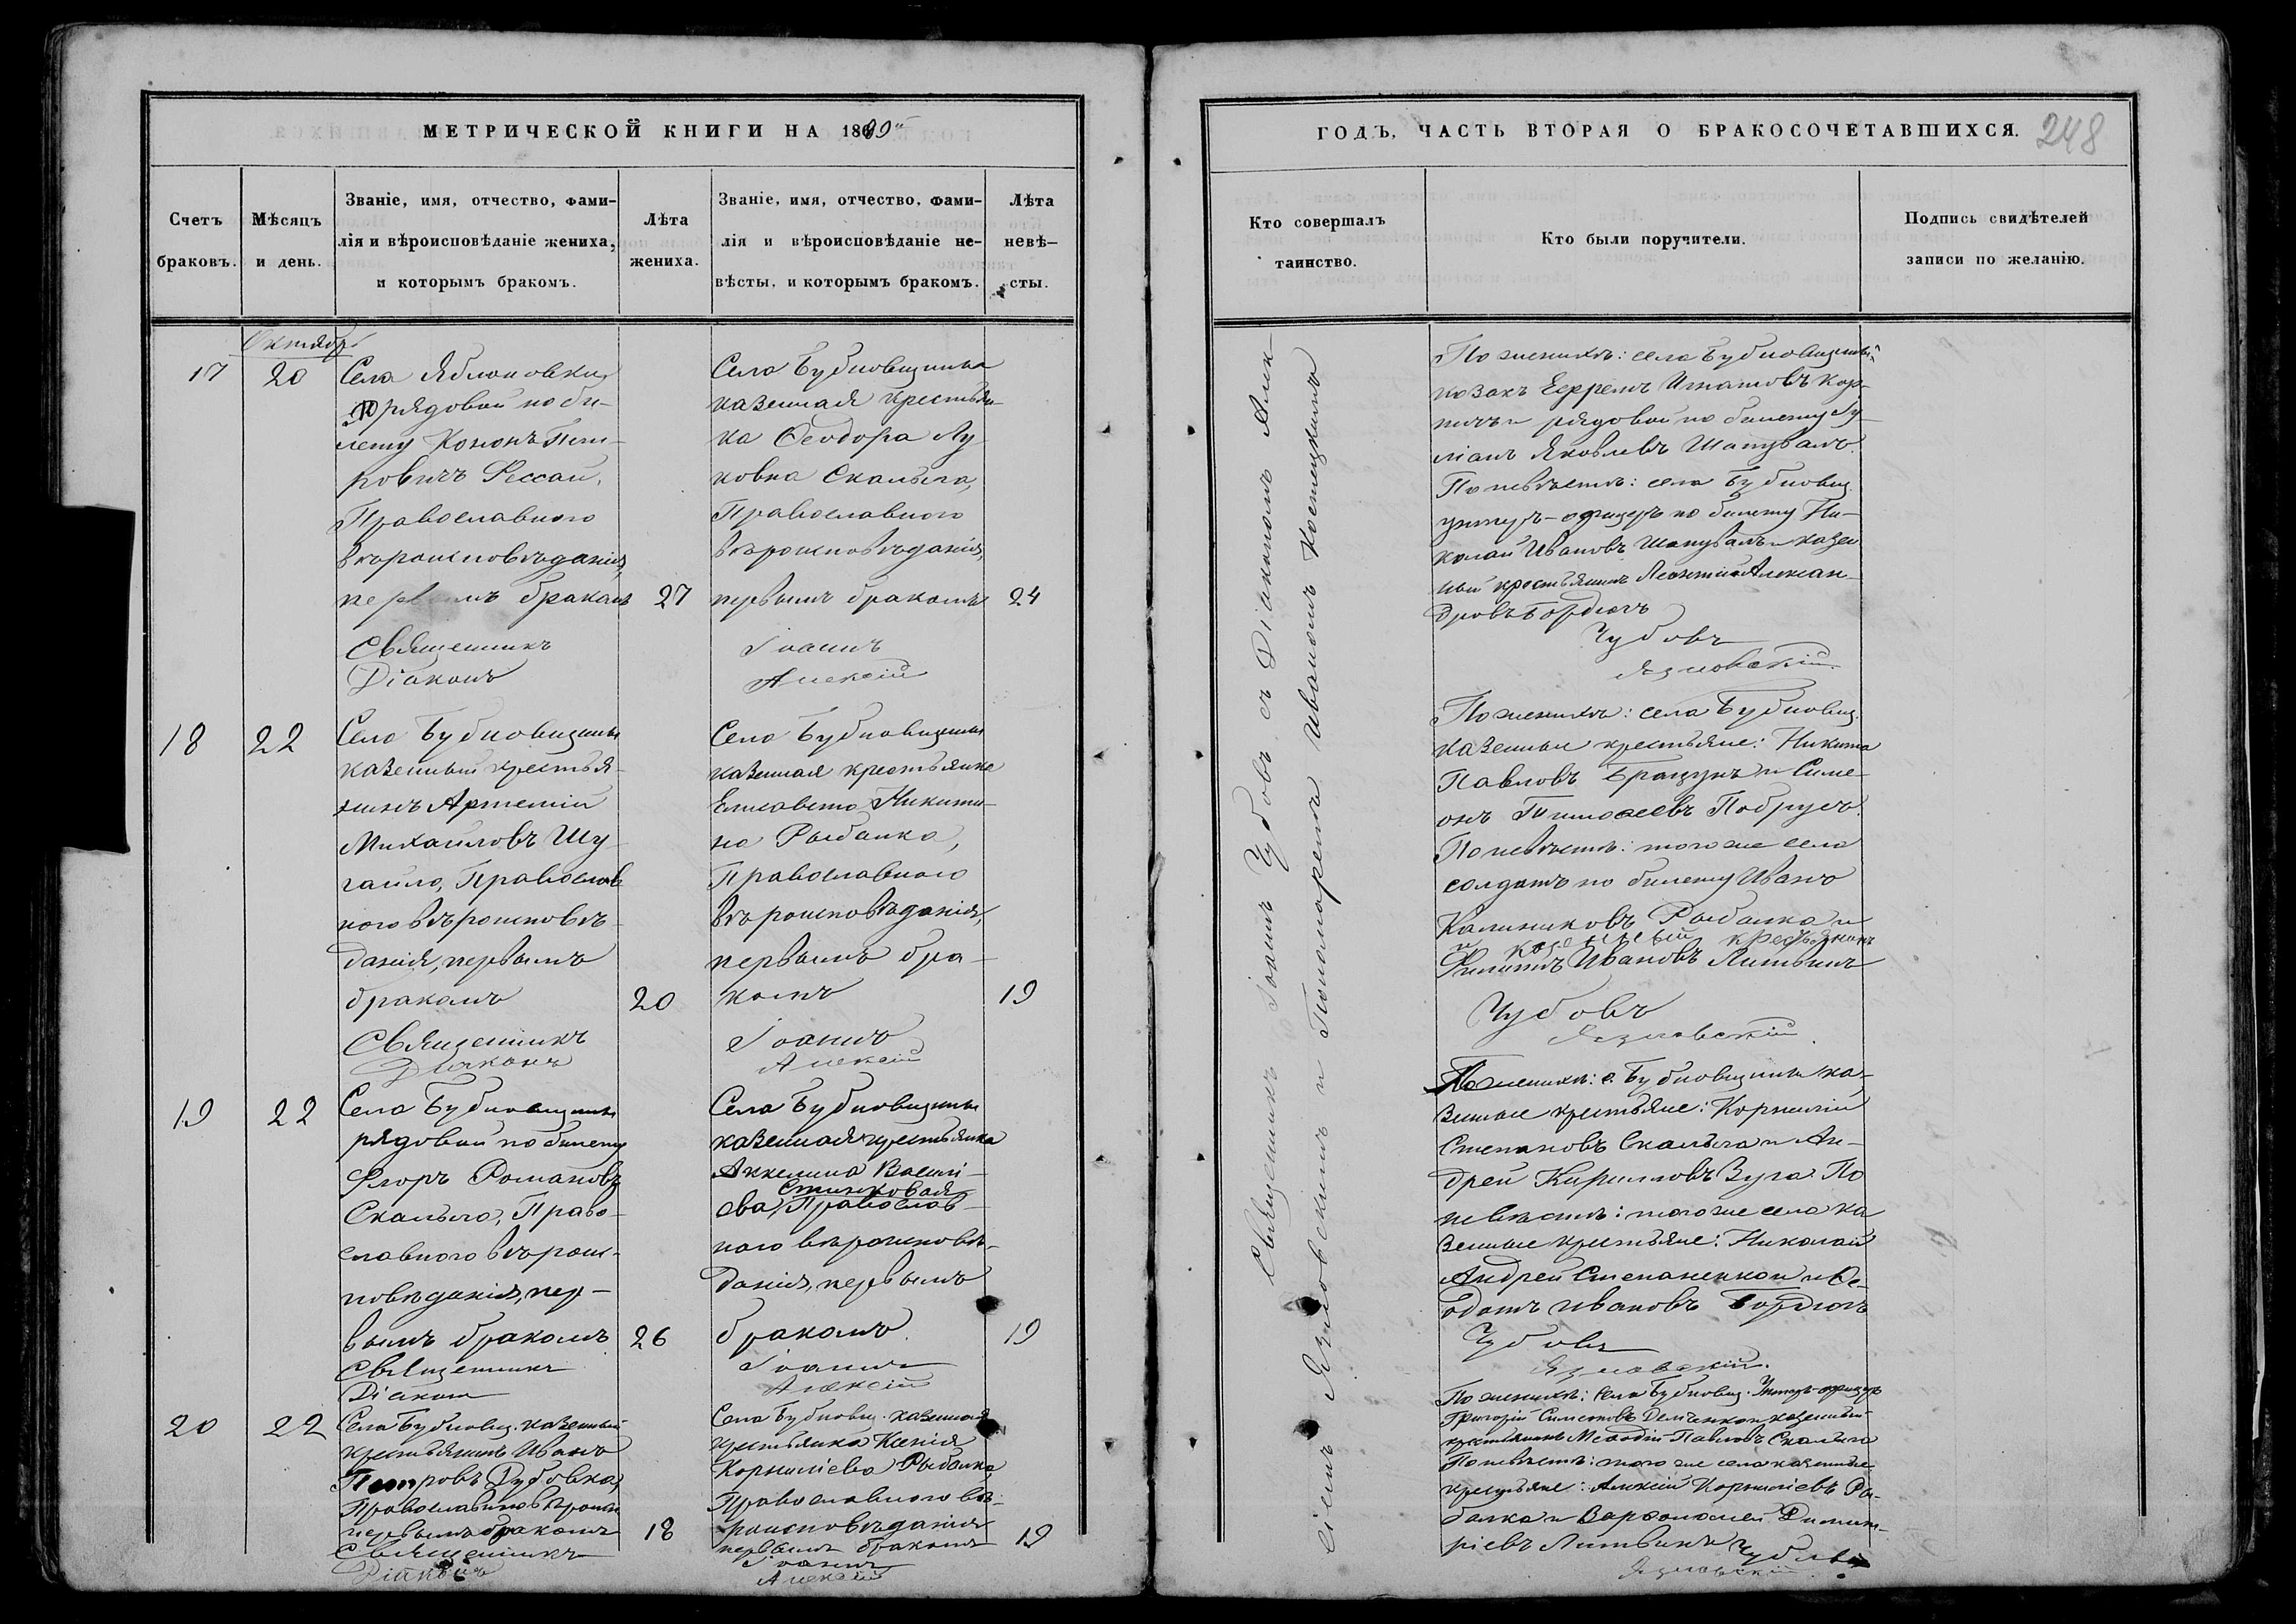 МЕТРИЧЕСКОЙ КНИГИ НА 1869й
Счетъ браковъ.
Мѣсяцъ и день.
Званіе, имя, отчество, фами-
лія и вѣроисповѣданіе жениха,
и которымъ бракомъ.
Лѣта жениха.
Званіе, имя, отчество, фами-
лія и вѣроисповѣданіе не-
вѣсты, и которымъ бракомъ.
Лѣта невѣ-
сты.
Октябрь
17
20
Села Яблоновки
рядовой по би-
лету Кононъ Пет-
ровичъ Рессай,
Православного
вѣроисповѣданія,
первымъ бракомъ
27
Священникъ
Діаконъ
Села Бубновщины
казенная крестьян-
ка Ѳеодора Лу
ковна Скалыга,
Православного
вѣроисповѣданія,
первымъ бракомъ
24
Іоаннъ
Алексій
18
22
Села Бубновщины
казенный крестья-
нинъ Артемій
Михайловъ Шу
гайло, Православ
ного вѣроисповѣ-
данія, первымъ
бракомъ
20
Священникъ
Діаконъ
Села Бубновщины
казенная крестьянка
Елисавета Никити-
на Рыбалка,
Православного
вѣроисповѣданія,
первымъ бра-
комъ
19
Іоаннъ
Алексій
19
22
Села Бубновщины
рядовой по билету
Флоръ Романовъ
Скалыга, Право-
славного вѣроис-
повѣданія, пер-
вымъ бракомъ
26
Священникъ
Діаконъ
Села Бубновщины
казенная крестьянка
Аккелина Василі-
ева, Православ-
ного вѣроисповѣ-
данія, первымъ
бракомъ
19
Іоаннъ
Алексій
20
22
Села Бубновщ. казенный
крестьянинъ Иванъ
Петровъ Дубовка,
Православного вѣроисп
первымъ бракомъ
18
Священникъ
Діаконъ
Села Бубновщ. казенная
крестьянка Ксенія
Корниліева Рыбалка
Православного вѣ-
роисповѣданія
первымъ бракомъ
19
Іоаннъ
Алексій
ГОДЪ, ЧАСТЬ ВТОРАЯ О БРАКОСОЧЕТАВШИХСЯ.
248
Кто совершалъ
таинство.
Кто были поручители.
Подпись свидѣтелей
записи по желанію.
Священникъ Іоаннъ Чубовъ съ Діакономъ Алек-
сіемъ Язловскимъ и Пономаремъ Иваномъ Костецкимъ
По женихѣ: села Бубновщины
козакъ Ефремъ Игнатовъ Кор-
и рядовой по билету Лу-
кіанъ Яковлевъ Шаповалъ.
По невѣстѣ: села Бубновщ.
унтеръ-офицеръ по билету Ни-
колай Ивановъ Шаповалъ и казен
ный крестьянинъ Леонтій Алексан-
дровъ Бордюгъ
Чубовъ
Язловскій
По женихѣ: села Бубновщ.
казенные крестьяне: Никита
Павловъ Брацунъ и Симе-
онъ Тимоѳеевъ Побрусъ.
По невѣстѣ: того же села
солдатъ по билету Иванъ
Калиниковъ Рыбалка и
и казенный крестьянинъ
Филиппъ Ивановъ Литвинъ
Чубовъ
Язловскій
По женихѣ: с. Бубновщины ка-
зенные крестьяне: Корнилій
Степановъ Скалыга и Ан-
дрей Кирилловъ Зуга. По
невѣстѣ: того же села ка
зенные крестьяне: Николай
Андрей Степаненко и Ѳе-
одотъ Ивановъ Бордюгъ
Чубовъ
Язловскій.
По женихѣ: села Бубновщ. Унтеръ-офицеръ
Григорій Симеоновъ Демченко и казенный
крестьянинъ Меѳодій Павловъ Скалыга
По невѣстѣ: того же села казенные
крестьяне: Алексій Корниліевъ Ры-
балка и Варѳоломей Димит-
ріевъ Литвинъ Чубовъ
Язловскій